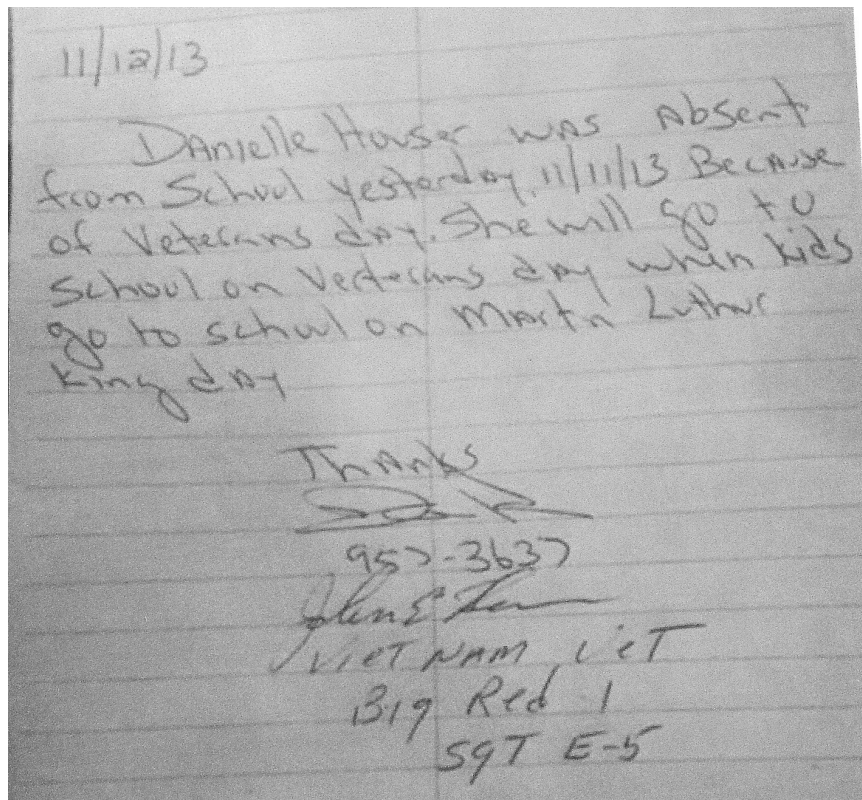 11/12/13
Danielle Houser was Absent
from School yesterday, 11/11/13 Because
of Veterans day. She will go to
School on Vecterans day when kids
go to school on Martin Luthur
King day
Thanks
957-3637
John E
VIET NAM VeT
Big Red 1
SgT E-5